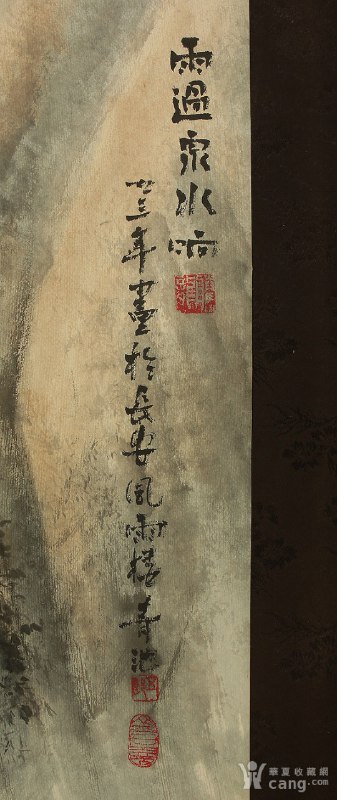 雨過泉水响
廿三年畫於長安風雨樓青池
華夏收藏網
cang.com